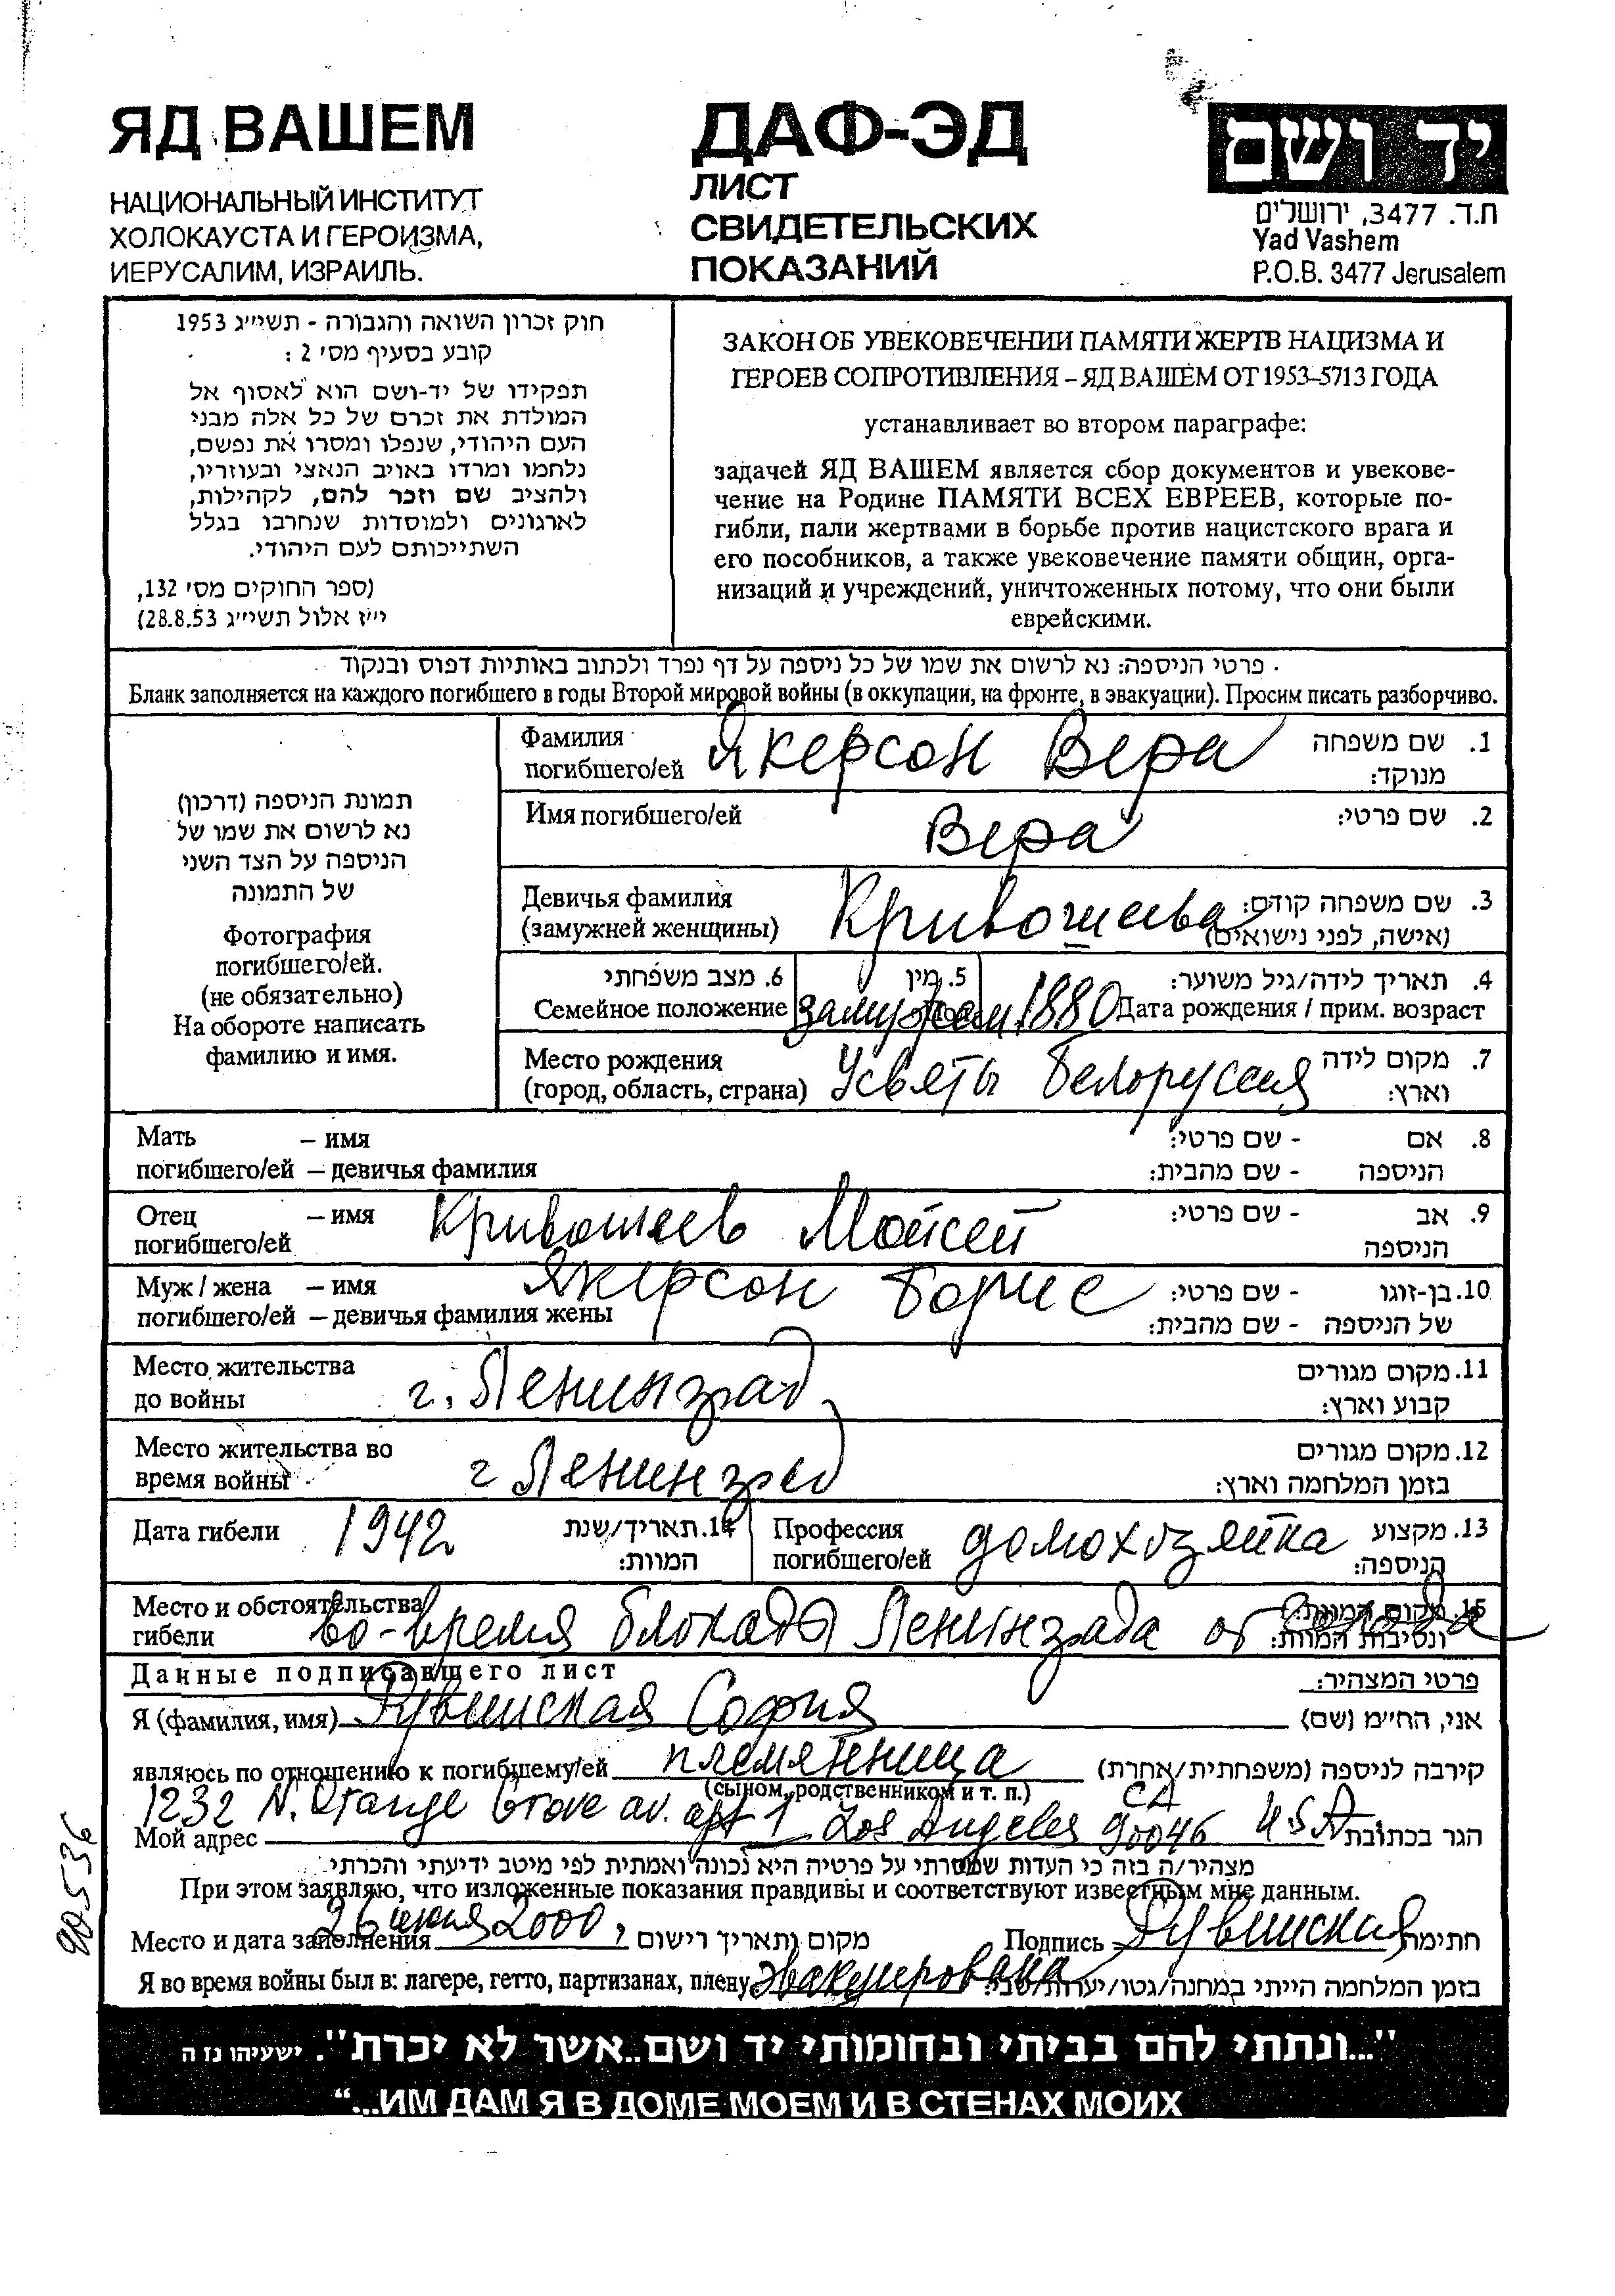 ЯД ВАШЕМ
НАЦИОНАЛЬНЫЙ ИНСТИТУТ
ХОЛОКАУСТА И ГЕРОИЗМА,
ИЕРУСАЛИМ, ИЗРАИЛЬ.
ДАФ-ЭД
ЛИСТ
СВИДЕТЕЛЬСКИХ
ПОКАЗАНИЙ
יד ושם
ת.ד. 3477, ירושלים
Yad Vashem
P.O.B. 3477 Jerusalem
חוק זכרון השואה והגבורה - תשי״ג 1953
קובע בסעיף מס׳ 2 :
תפקידו של יד-ושם הוא לאסוף אל
המולדת את זכרם של כל אלה מבני
העם היהודי, שנפלו ומסרו את נפשם,
נלחמו ומרדו באויב הנאצי ובעוזריו,
ולהציב שם וזכר להם, לקהילות,
לארגונים ולמוסדות שנחרבו בגלל
השתייכותם לעם היהודי.
(ספר החוקים מס׳ 132,
י״ז אלול תשי״ג 28.8.53)
ЗАКОН ОБ УВЕКОВЕЧЕНИИ ПАМЯТИ ЖЕРТВ НАЦИЗМА И
ГЕРОЕВ СОПРОТИВЛЕНИЯ – ЯД ВАШЕМ ОТ 1953–5713 ГОДА
устанавливает во втором параграфе:
задачей ЯД ВАШЕМ является сбор документов и увекове-
чение на Родине ПАМЯТИ ВСЕХ ЕВРЕЕВ, которые по-
гибли, пали жертвами в борьбе против нацистского врага и
его пособников, а также увековечение памяти общин, орга-
низаций и учреждений, уничтоженных потому, что они были
еврейскими.
פרטי הניספה: נא לרשום את שמו של כל ניספה על דף נפרד ולכתוב באותיות דפוס ובנקוד
Бланк заполняется на каждого погибшего в годы Второй мировой войны (в оккупации, на фронте, в эвакуации). Просим писать разборчиво.
תמונת הניספה (דרכון)
נא לרשום את שמו של
הניספה על הצד השני
של התמונה
Фотография
погибшего/ей.
(не обязательно)
На обороте написать
фамилию и имя.
Фамилия Якерсон Вера 1. שם משפחה
погибшего/ей מנוקד:
Имя погибшего/ей Вера 2. שם פרטי:
Девичья фамилия Кривошеева 3. שם משפחה קודם:
(замужней женщины) (אישה, לפני נישואים)
6. מצב משפחתי 5. מין 4. תאריך לידה/גיל משוער:
Семейное положение замужем 1880 Дата рождения / прим. возраст
Место рождения Усвяты Белоруссия 7. מקום לידה
(город, область, страна) וארץ:
Мать – имя 8. אם - שם פרטי:
погибшего/ей – девичья фамилия הניספה - שם מהבית:
Отец – имя Кривошеев Мойсей 9. אב - שם פרטי:
погибшего/ей הניספה
Муж / жена – имя Якерсон Борис 10. בן-זוגו - שם פרטי:
погибшего/ей – девичья фамилия жены של הניספה - שם מהבית:
Место жительства г. Ленинград 11. מקום מגורים
до войны קבוע וארץ:
Место жительства во г Ленинград 12. מקום מגורים
время войны בזמן המלחמה וארץ:
Дата гибели 1942 14. תאריך/שנת המוות:
Профессия домохозяйка 13. מקצוע
погибшего/ей הניספה:
Место и обстоятельства 15. מקום המוות:
гибели во-время блокады Ленинграда от голода ונסיבות המוות:
Данные подписавшего лист פרטי המצהיר:
Я (фамилия, имя) Рувинская София אני, החי״מ (שם)
являюсь по отношению к погибшему/ей племянница קירבה לניספה (משפחתית/אחרת)
(сыном, родственником и т. п.)
1232 N. Orange Grove av. apt 1 Los Angeles CA 90046 USA
Мой адрес הגר בכתובת
מצהיר/ה בזה כי העדות שמסרתי על פרטיה היא נכונה ואמתית לפי מיטב ידיעתי והכרתי.
При этом заявляю, что изложенные показания правдивы и соответствуют известным мне данным.
Место и дата заполнения 26 2000, מקום ותאריך רישום Подпись Рувинская חתימה
Я во время войны был в: лагере, гетто, партизанах, плену эвакуирована בזמן המלחמה הייתי במחנה/גטו/יערות/שבי:
"...ונתתי להם בביתי ובחומותי יד ושם..אשר לא יכרת". ישעיהו נז ה
“...ИМ ДАМ Я В ДОМЕ МОЕМ И В СТЕНАХ МОИХ